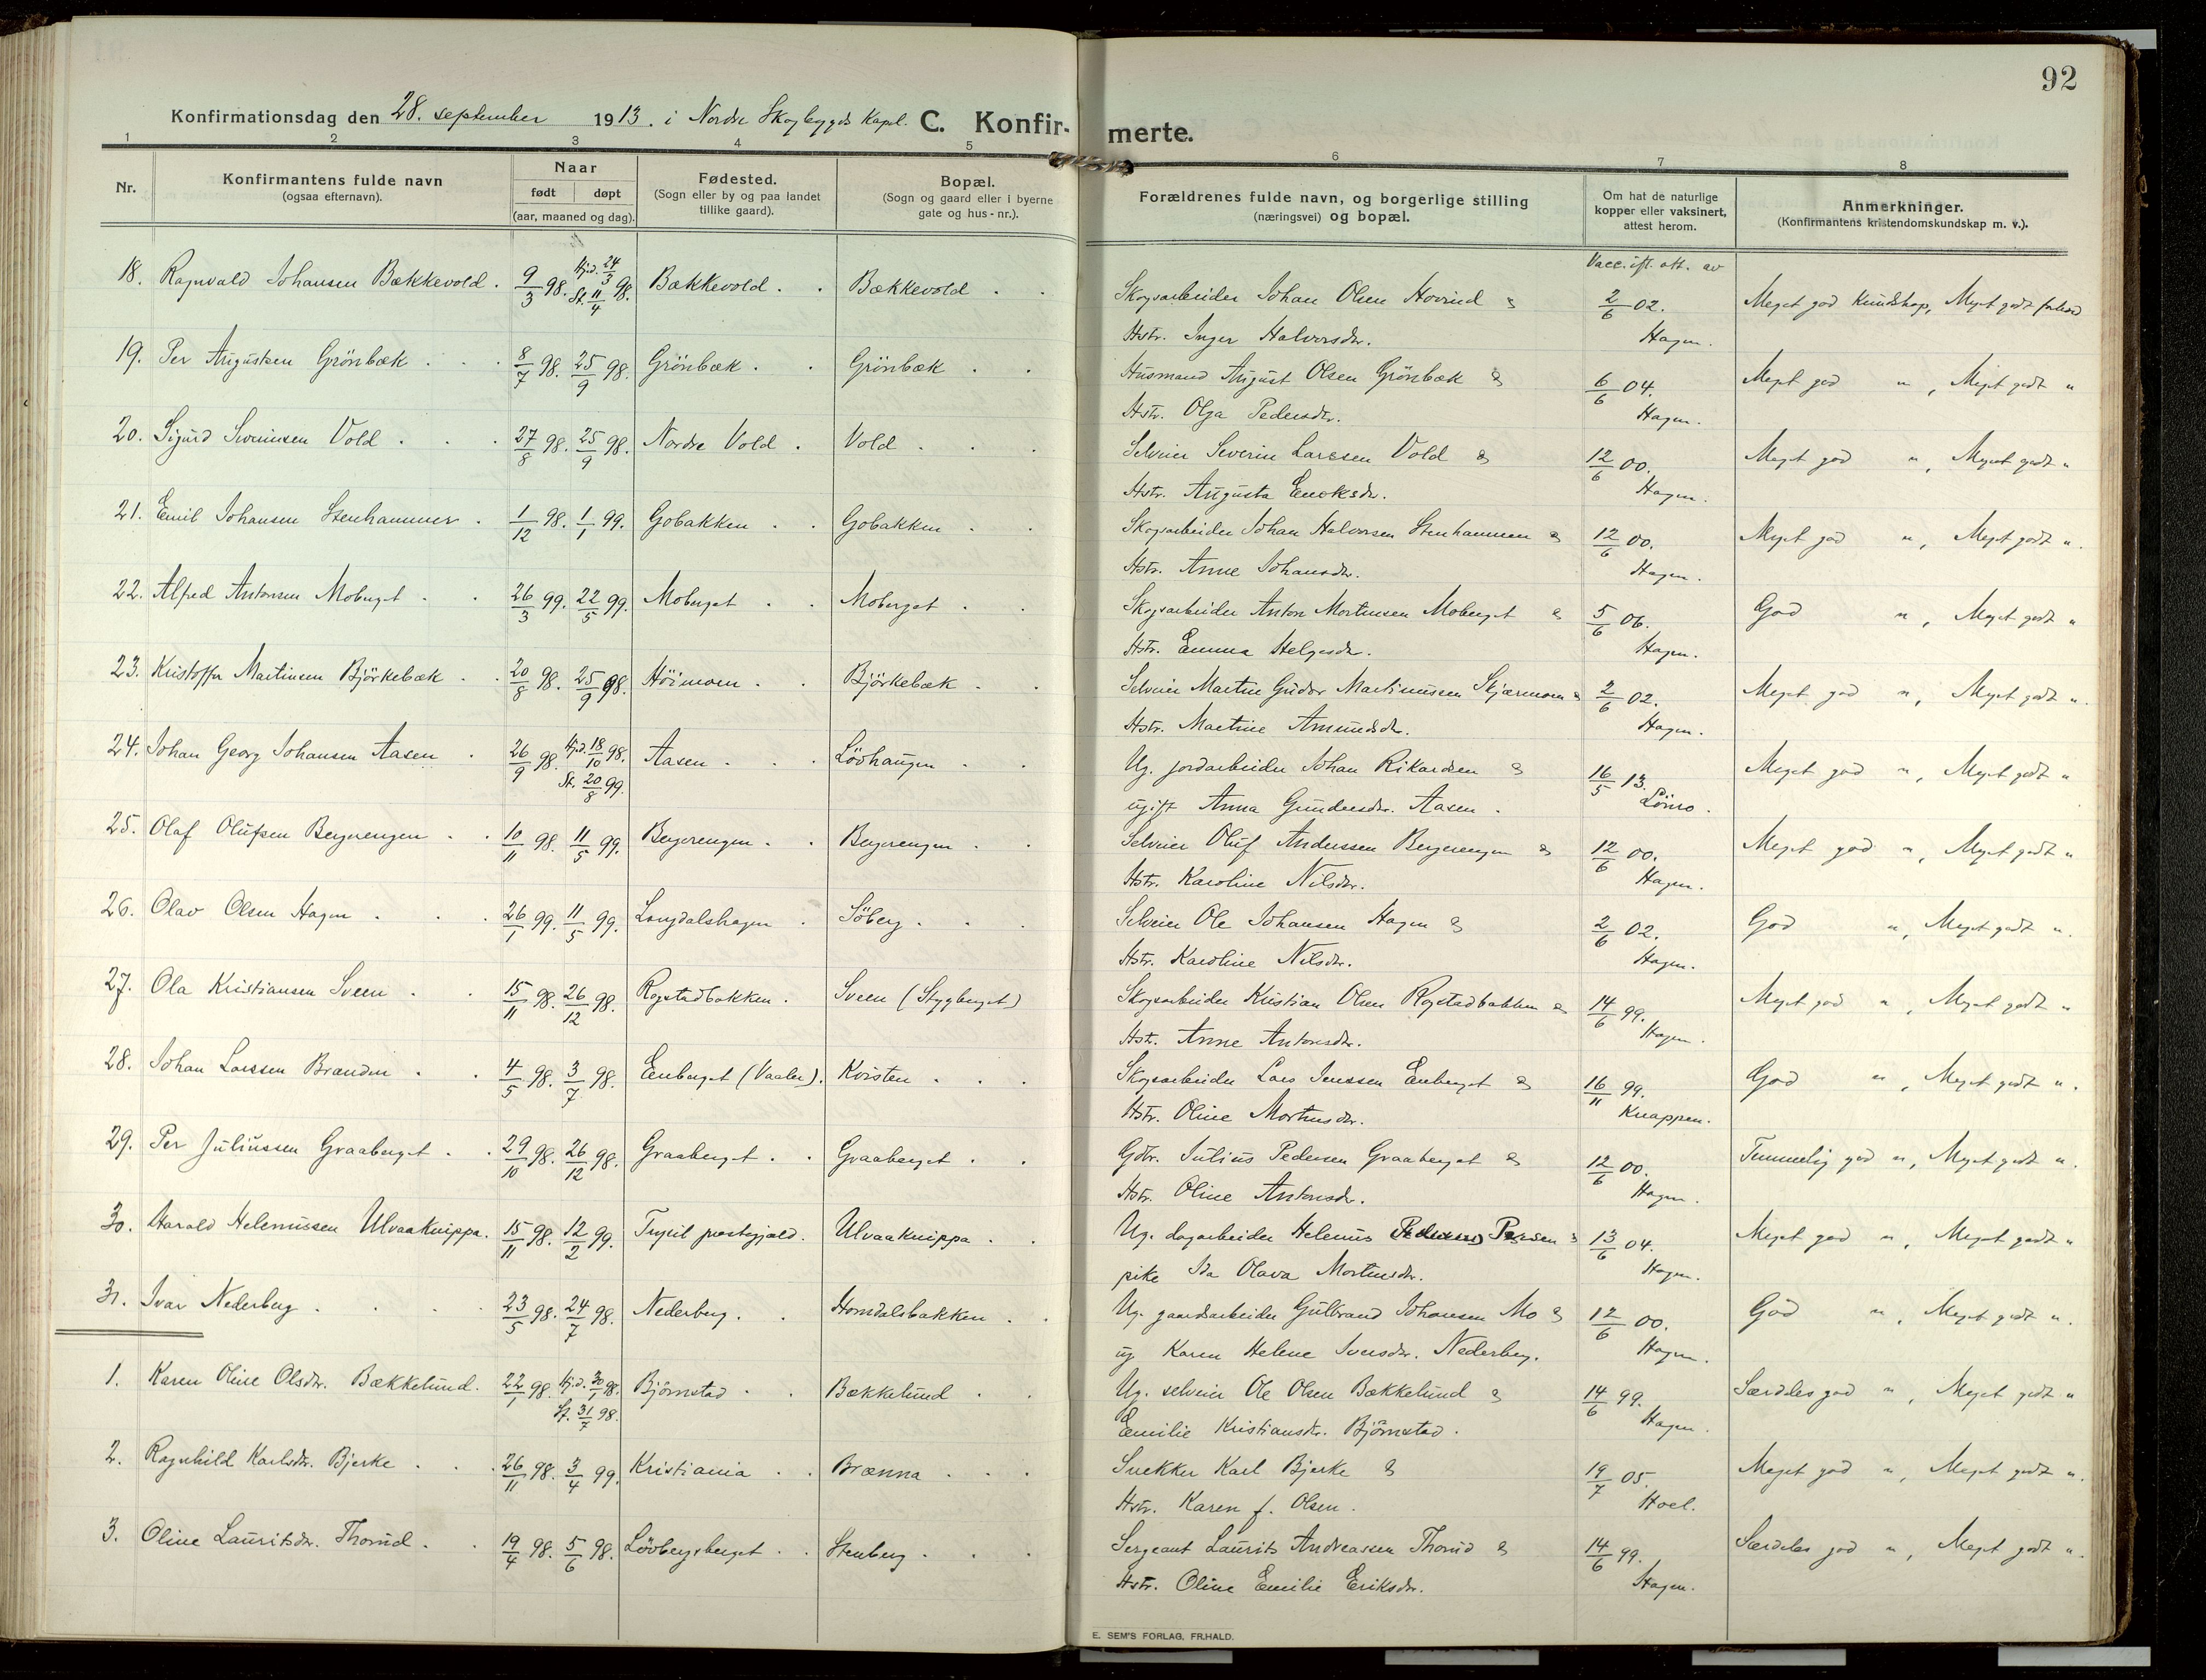 92
Konfirmationsdag den 28. september 1913. i Nordre Skogbygds Kapel. C. Konfirmerte.
1 2 3 4 5 6 7 8
Nr.
Konfirmantens fulde navn
(ogsaa efternavn).
Naar
født døpt
(aar, maaned og dag).
Fødested.
(Sogn eller by og paa landet
tillike gaard).
Bopæl.
(Sogn og gaard eller i byerne
gate og hus-nr.).
Forældrenes fulde navn, og borgerlige stilling
(næringsvei) og bopæl.
Om hat de naturlige
kopper eller vaksinert,
attest herom.
Anmerkninger.
(Konfirmantens kristendomskundskap m. v.).
Vacc. ifl. att. av
18. Ragnvald Johansen Bækkevold. 9/3 98. Hj.d. 24/3 St. 11/4 98. Bækkevold. Bækkevold. Skogsarbeider Johan Olsen Hovind & 2/6 02. Meget god Kundskap, Meget godt forhold
Hstr. Inger Halvorsdr. Hagen.
19. Per Augustsen Grönbæk 8/7 98. 25/9 98. Grönbæk. Grönbæk. Husmand August Olsen Grönbæk & 6/6 04. Meget god ", Meget godt "
Hstr. Olga Pedersdr. Hagen.
20. Sigurd Severinsen Vold. 27/8 98. 25/9 98. Nordre Vold. Vold. Selveier Severin Larssen Vold & 12/6 00. Meget god ", Meget godt "
Hstr. Augusta Enoksdr. Hagen.
21. Emil Johansen Stenhammer. 1/12 98. 1/1 99. Gobakken. Gobakken. Skogsarbeider Johan Halvorsen Stenhammer & 12/6 00. Meget god ", Meget godt ".
Hstr. Anne Johansdr. Hagen.
22. Alfred Antonsen Moberget. 26/3 99. 22/5 99. Moberget. Moberget. Skogsarbeider Anton Mortinsen Moberget & 5/6 06. God ", Meget godt "
Hstr. Emma Helgesdr. Hagen.
23. Kristoffer Martinsen Björkebæk. 20/8 98. 25/9 98. Höimoen. Björkebæk. Selveier Martin Gudor Martinussen Skjærmoen & 2/6 02. Meget god ", Meget godt ".
Hstr. Martine Amundsdr. Hagen.
24. Johan Georg Johansen Aasen. 26/9 98. Hj.d. 18/10 98. St. 20/8 99. Aasen. Lövhaugen. Ug. jordarbeider Johan Rikardsen & 16/5 13. Meget god ", Meget godt "
ugift Anna Gundersdr. Aasen. Lönro.
25. Olaf Olufsen Bergerengen. 10/11 98. 11/5 99. Bergerengen. Bergerengen. Selveier Oluf Anderssen Bergerengen & 12/6 00. Meget god ", Meget godt "
Hstr. Karoline Nilsdr. Hagen.
26. Olav Olsen Hagen. 26/1 99. 11/5 99. Langdalshagen. Söberg. Selveier Ole Johansen Hagen & 2/6 02. God ", Meget godt ".
Hstr. Karoline Nilsdr. Hagen.
27. Ola Kristiansen Sveen. 15/11 98. 26/12 98. Rogstadbakken. Sveen (Stygberget) Skogsarbeider Kristian Olsen Rogstadbakken & 14/6 99. Meget god ", Meget godt "
Hstr. Anne Antonsdr. Hagen.
28. Johan Larssen Brænden. 4/5 98. 3/7 98. Enberget (Vaaler). Kvisten. Skogsarbeider Lars Jenssen Enberget & 16/11 99. God ", Meget godt ".
Hstr. Oline Mortensdr. Knappen.
29. Per Juliussen Graaberget. 29/10 98. 26/12 98. Graaberget. Graaberget. Gdbr. Julius Pedersen Graaberget & 12/6 00. Temmelig god ", Meget godt ".
Hstr. Oline Antonsdr. Hagen.
30. Harald Helenussen Ulvaaknippa. 15/11 98. 12/2 99. Trysil prestegjæld. Ulvaaknippa. Ug. dagarbeider Helenus Persen & 13/6 04. Meget god ", Meget godt "
pike Ida Olava Mortensdr. Hagen.
31. Ivar Nederberg. 23/5 98. 24/7 98. Nederberg. Horndalsbakken. Ug. gaardsarbeider Gulbrand Johansen Mo & 12/6 00. God ", Meget godt ".
ug Karen Helene Iversdr. Nederberg. Hagen.
1. Karen Oline Olsdr. Bækkelund. 22/1 98. Hj.d. 30/1 98. St. 31/7 98. Björnstad. Bækkelund. Ug. selveier Ole Olsen Bækkelund & 14/6 99. Særdeles god ", Meget godt "
Emilie Kristiansdr. Björnstad. Hagen.
2. Ragnhild Karlsdr. Bjerke. 26/11 98. 3/4 99. Kristiania. Brænna. Snekker Karl Bjerke & 19/7 05. Meget god ", Meget godt ".
Hstr. Karen f. Olsen. Hoel.
3. Oline Lauritsdr. Thorud. 19/4 98. 5/6 98. Lövbergsberget. Stenberg. Sergeant Laurits Andreassen Thorud & 14/6 99. Særdeles god ", Meget godt ".
Hstr. Oline Emilie Eriksdr. Hagen.
E. SEM'S FORLAG, FR.HALD.